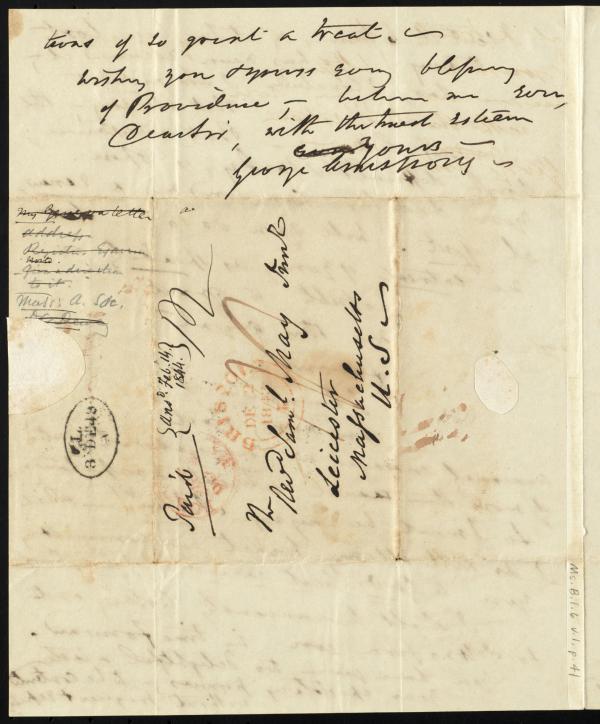 tions of so great a treat.
wishing you & yours every blessing
of Providence, – believe me ever,
Dear Sir, with the truest esteem
yours
George Armstrong
my letter
address
to it.
Mass: A. Soc.
Paid
ans^d. Feb. 14,
1844.
The
Rev^d Sam^l. May Jun^r
Leicester
Massachusetts
U. S
BRISTOL
DE
L
3 DE 43
Ms. B.1.6 v.1, p. 41